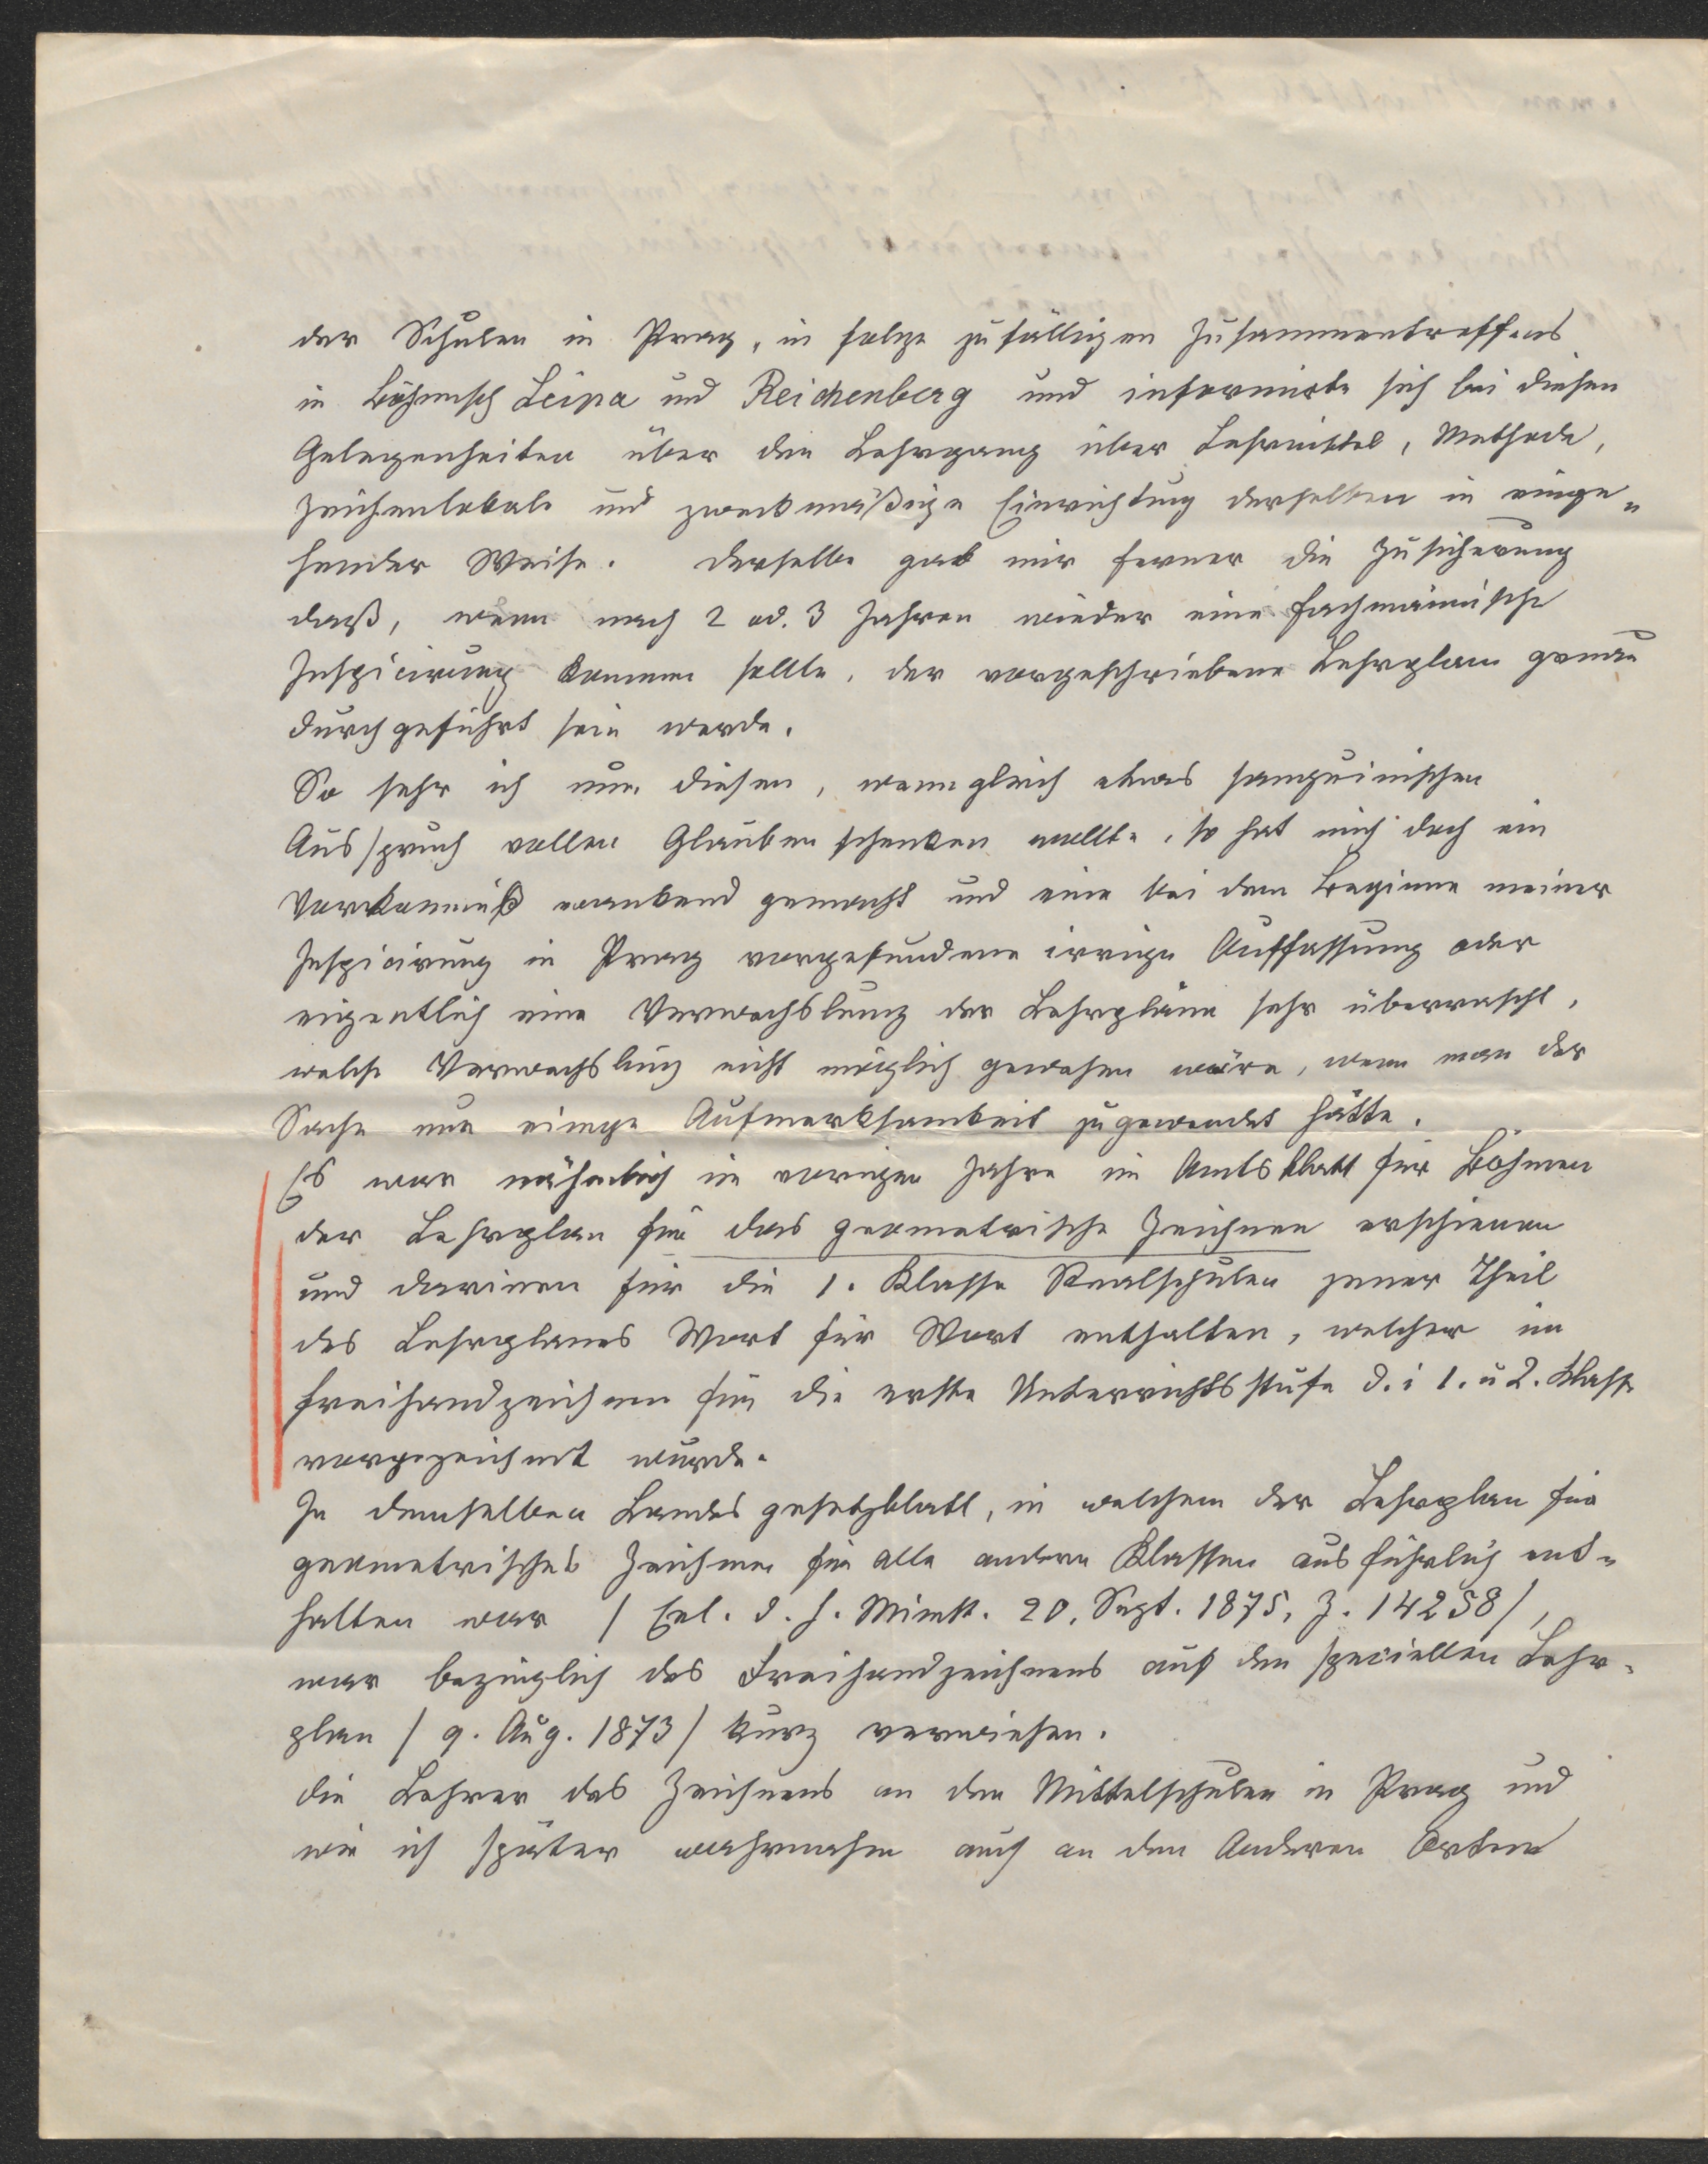 der Schulen in Prag, in folge zufälligen Zusammentreffens
in Böhmisch Leipa und Reichenberg und informirte sich bei diesen
Gelegenheiten über den Lehrgang über Lehrmittel, Methode,
Zeichenlokale und zweckmäßige Einrichtung derselben in einge„
hender Weise. Derselbe gab mir ferner die Zusicherung
daß, wenn nach 2 od. 3 Jahren wieder eine fachmännische
Inspicirung kommen sollte, der vorgeschriebene Lehrplan genau
durchgeführt sein werde.
So sehr ich nun diesen, wenngleich etwas sanguinischen
Ausspruch vollen Glauben schenken wollte, so hat mich doch ein
Vorkommniß wankend gemacht und eine bei dem Beginne meiner
Inspicirung in Prag vorgefundene irrige Auffassung oder
eigentlich eine Verwechslung der Lehrpläne sehr überrascht,
welche Verwechslung nicht möglich gewesen wäre, wenn man der
Sache nur einige Aufmerksamkeit zugewendet hätte.
Es war nähmlich im vorigen Jahre im Amtsblatt für Böhmen
der Lehrplan für das geometrische Zeichnen erschienen
und darinen für die 1. Klasse Realschulen jener Theil
des Lehrplanes Wort für Wort enthalten, welcher im
Freihandzeichnen für die erste Unterrichtsstufe d. i 1. u 2. Klasse
vorgezeichnet wurde.
In demselben Landesgesetzblatt, in welchem der Lehrplan für
geometrisches Zeichnen für alle andern Klassen ausführlich ent„
halten war / Erl. d. h. Minist. 20. Sept. 1875, Z. 14258/,
war bezüglich des Freihandzeichnens auf den speciellen Lehr„
plan / 9. Aug. 1873 / kurz verwiesen.
Die Lehrer des Zeichnens an den Mittelschulen in Prag und
wie ich später wahrnahm auch an den Anderen Orten